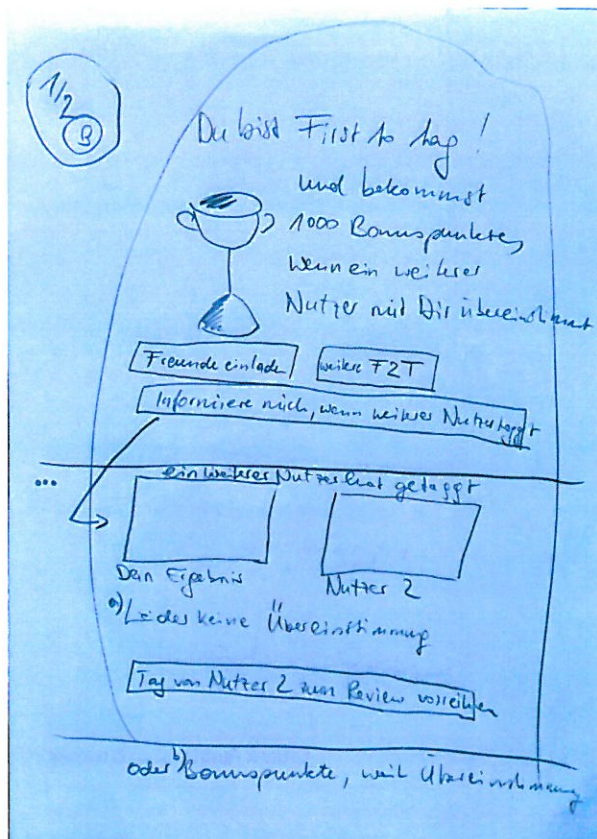 1/2
B
Du bist First to tag!
und bekommst
1000 Bonuspunkte,
wenn ein weiterer
Nutzer mit Dir übereinstimmt
Freunde einladen
weitere F2T
Informiere mich, wenn weiterer Nutzer taggt
...
ein weiterer Nutzer hat getaggt
Dein Ergebnis
Nutzer 2
a) Leider keine Übereinstimmung
Tag von Nutzer 2 zum Review vorreihen
oder b) Bonuspunkte, weil Übereinstimmung